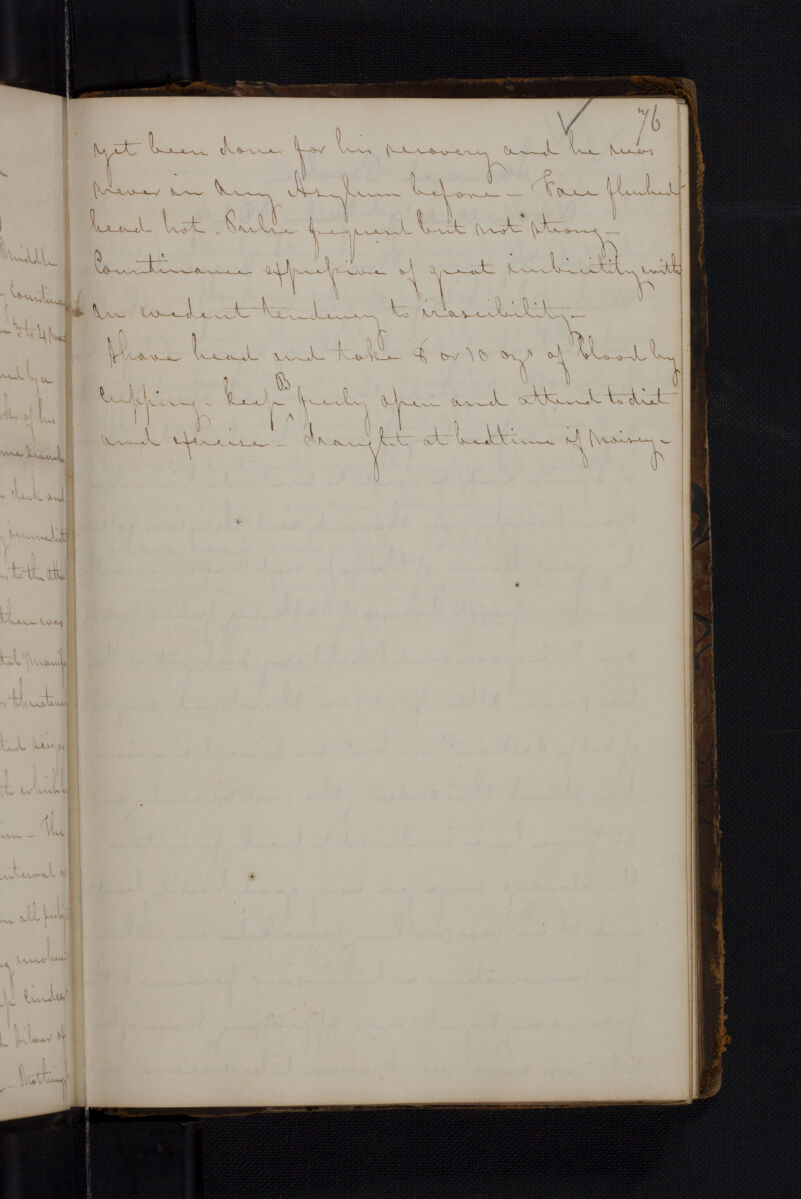 76
yet been done for his recovery and he was
never in any Asylum before - Face flushed
head hot - Pulse frequent but not strong -
Countinance expressive of great imbicility with
an evedent tendency to irascibility -
Shave head and take 8 or 10 ozs of blood by
cupping - keep B freely open and attend to diet
and exercise - draught at bedtime if noisey -
Middle
3 to 4
of his
dark and
to the
there was
all
Nothing